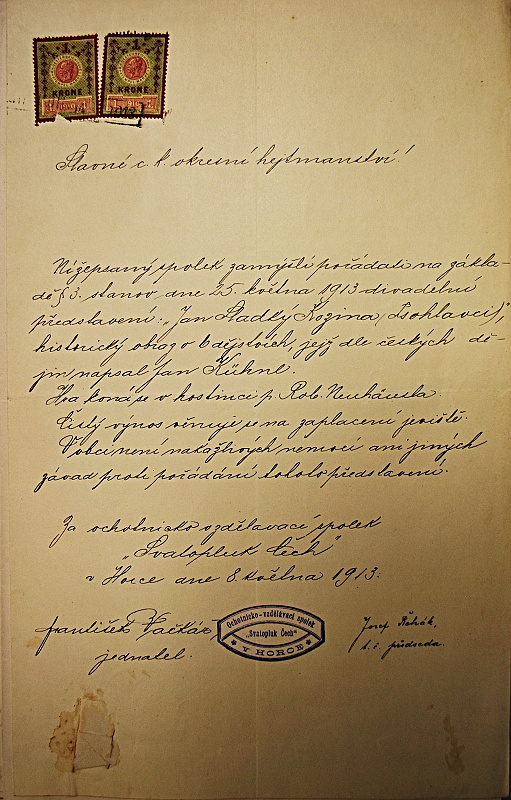 1 1
KRONE KRONE
1910 1910
Slavné c. k. okresní hejtmanství!
Nížepsaný spolek zamýšlí pořádati na zákla-
dě § 3. stanov dne 25. května 1913 divadelní
představení: „Jan Sladký Kozina (Psohlavci)",
historický obraz o 6 dějstvích, jejž dle českých dě-
jin napsal Jan Kühnl.
Hra koná se v hostinci p. Rob. Neuhäusla.
Čistý výnos věnuje se na zaplacení jeviště.
V obci není nakažlivých nemocí ani jiných
závad proti pořádání tohoto představení.
Za ochotnicko vzdělavací spolek
„Svatopluk Čech"
v Horce dne 8. května 1913:
František Vačkář
jednatel.
Ochotnicko-vzdělávací spolek
„Svatopluk Čech"
V HORCE
Josef Řehák,
t. č. předseda.